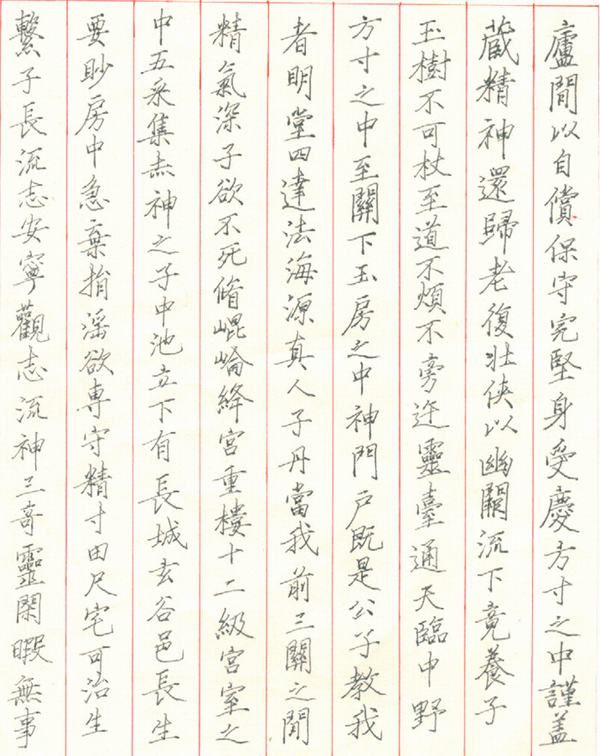 廬間以自償保守完堅身受慶方寸之中謹蓋
藏精神還歸老復壯俠以幽闕流下竟養子
玉樹不可杖至道不煩不旁迕靈臺通天臨中野
方寸之中至關下玉房之中神門戶既是公子教我
者明堂四達法海源真人子丹當我前三關之間
精氣深子欲不死脩崐崘絳宮重樓十二級宮室之
中五采集赤神之子中池立下有長城玄谷邑長生
要眇房中急棄捐滛欲専守精寸田尺宅可治生
繫子長流志安寧觀志流神三奇靈閑暇無事